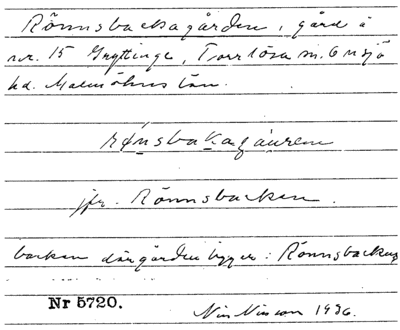 Rönnsbackagården, gård å
nr. 15 Gryttinge, Torrlösa sn. Onsjö
hd. Malmöhus län.
rønsbakagåuren
jfr. Rönnsbacken.
backen där gården ligger: Rönnsbacken
Nr 5720.
Nils Nilsson 1936.